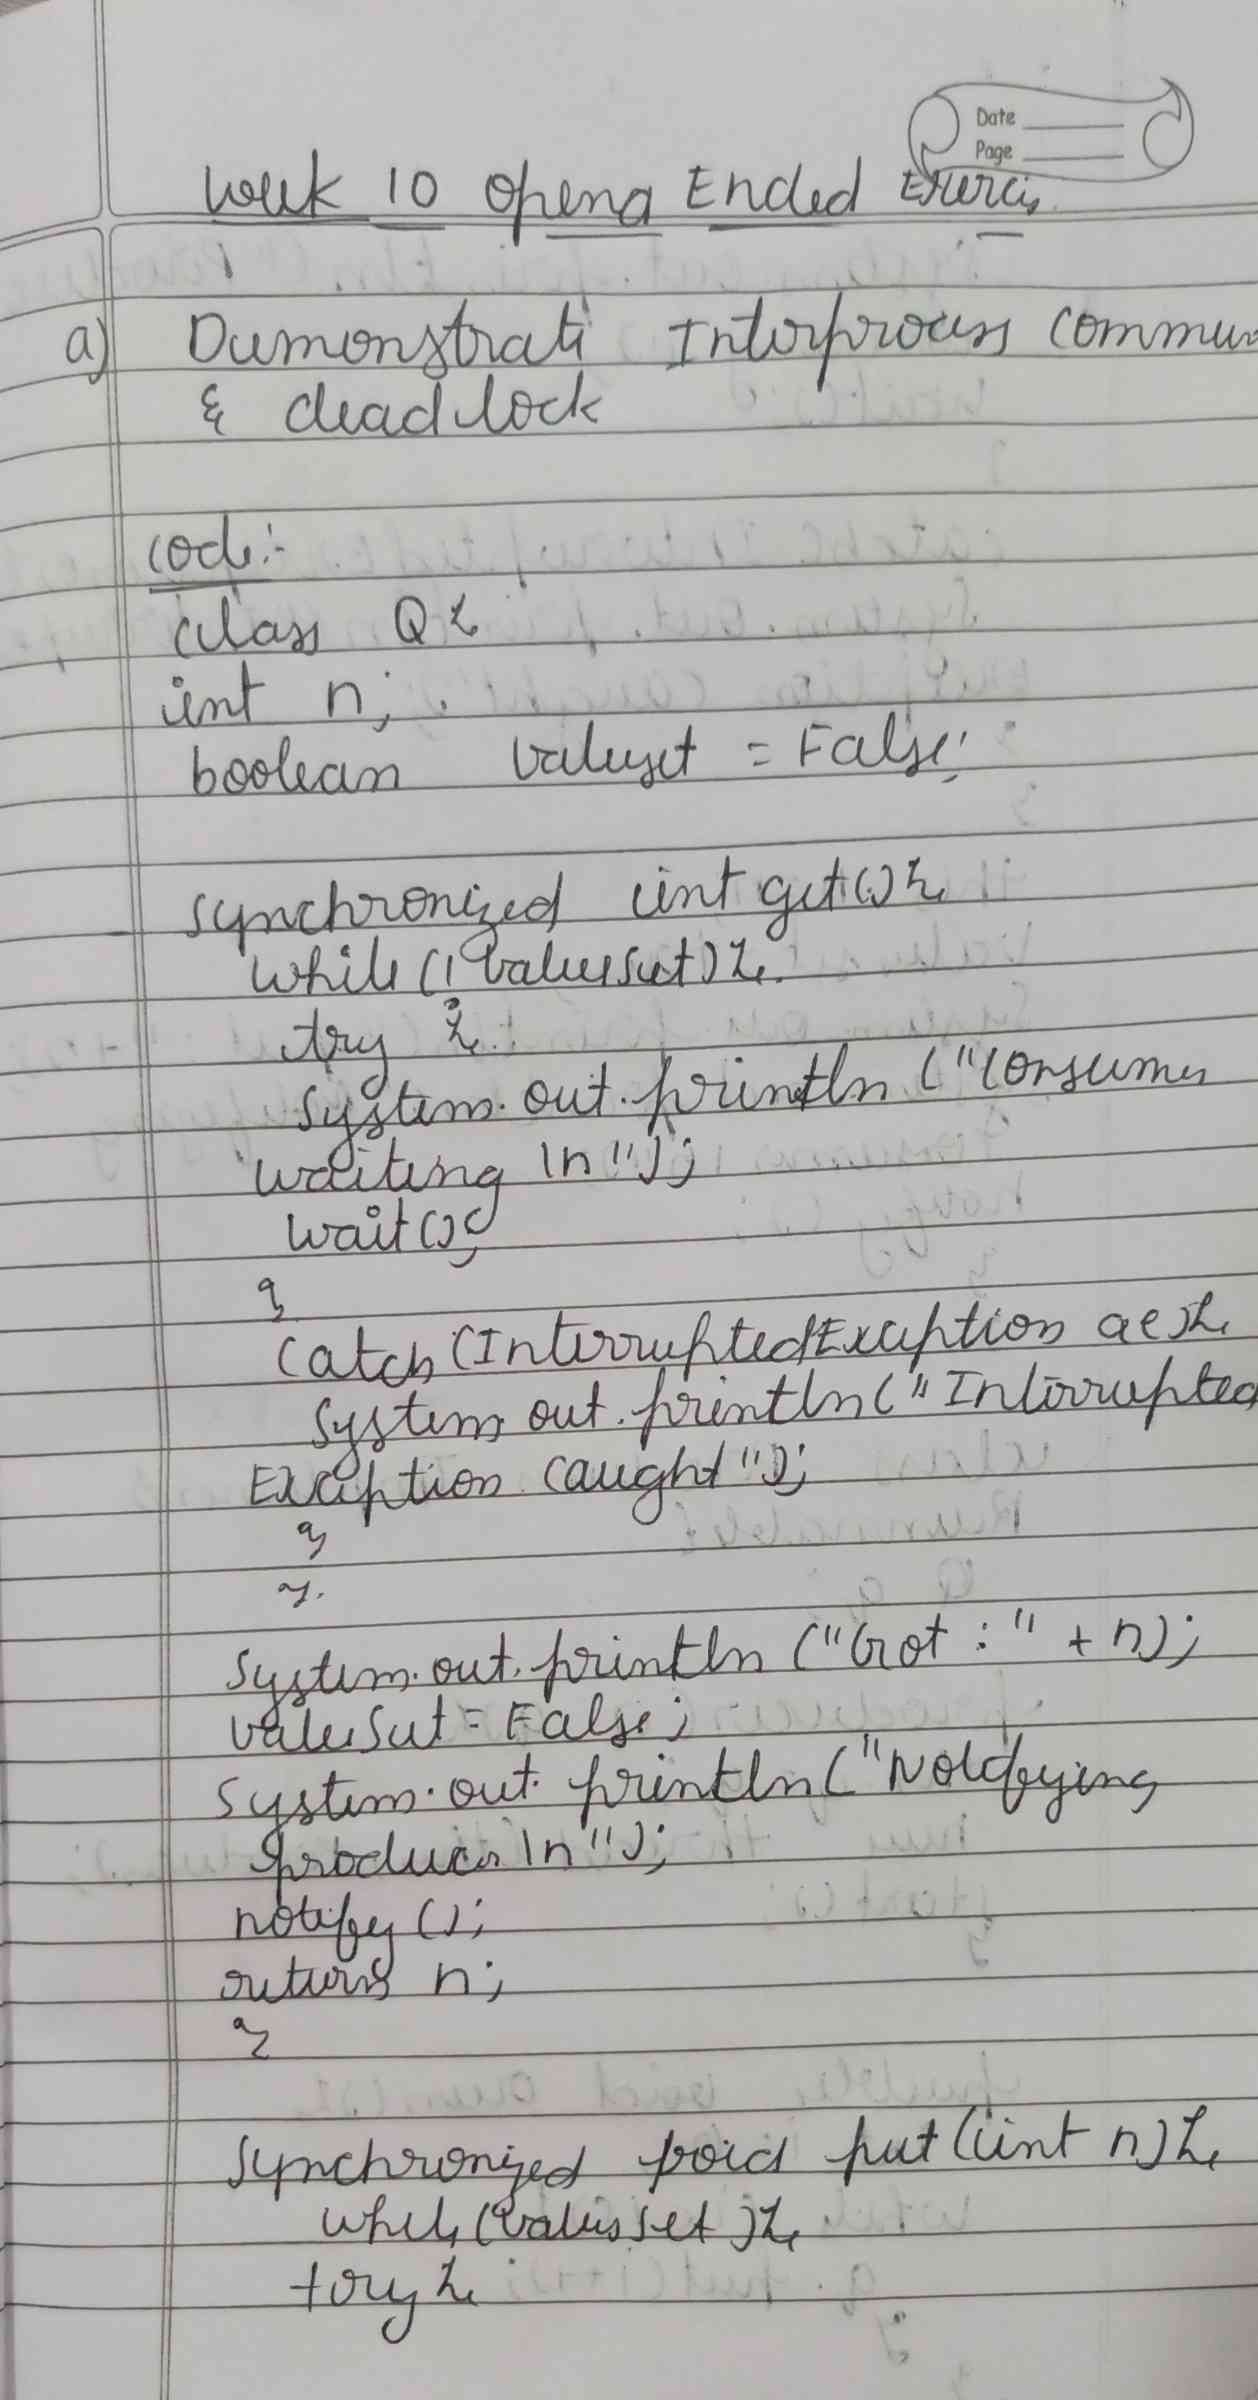 Date
Page
Week 10 Opena Ended Exercis
a) Dumonstrati Interprocess Commun
& deadlock
code:-
class Q {
int n;
boolean valueset = False;
synchronized int get() {
while (! valueset) {
try {
System.out.println ("Consumer
waiting \n");
wait();
}
catch (InterruptedException ae) {
System.out.println (" Interrupted
Exception caught");
}
}
System.out.println ("Got : " + n);
valueSet = False;
System.out.println ("Notifying
producer \n");
notify ();
return n;
}
synchronized void put (int n) {
while (valueset) {
try {